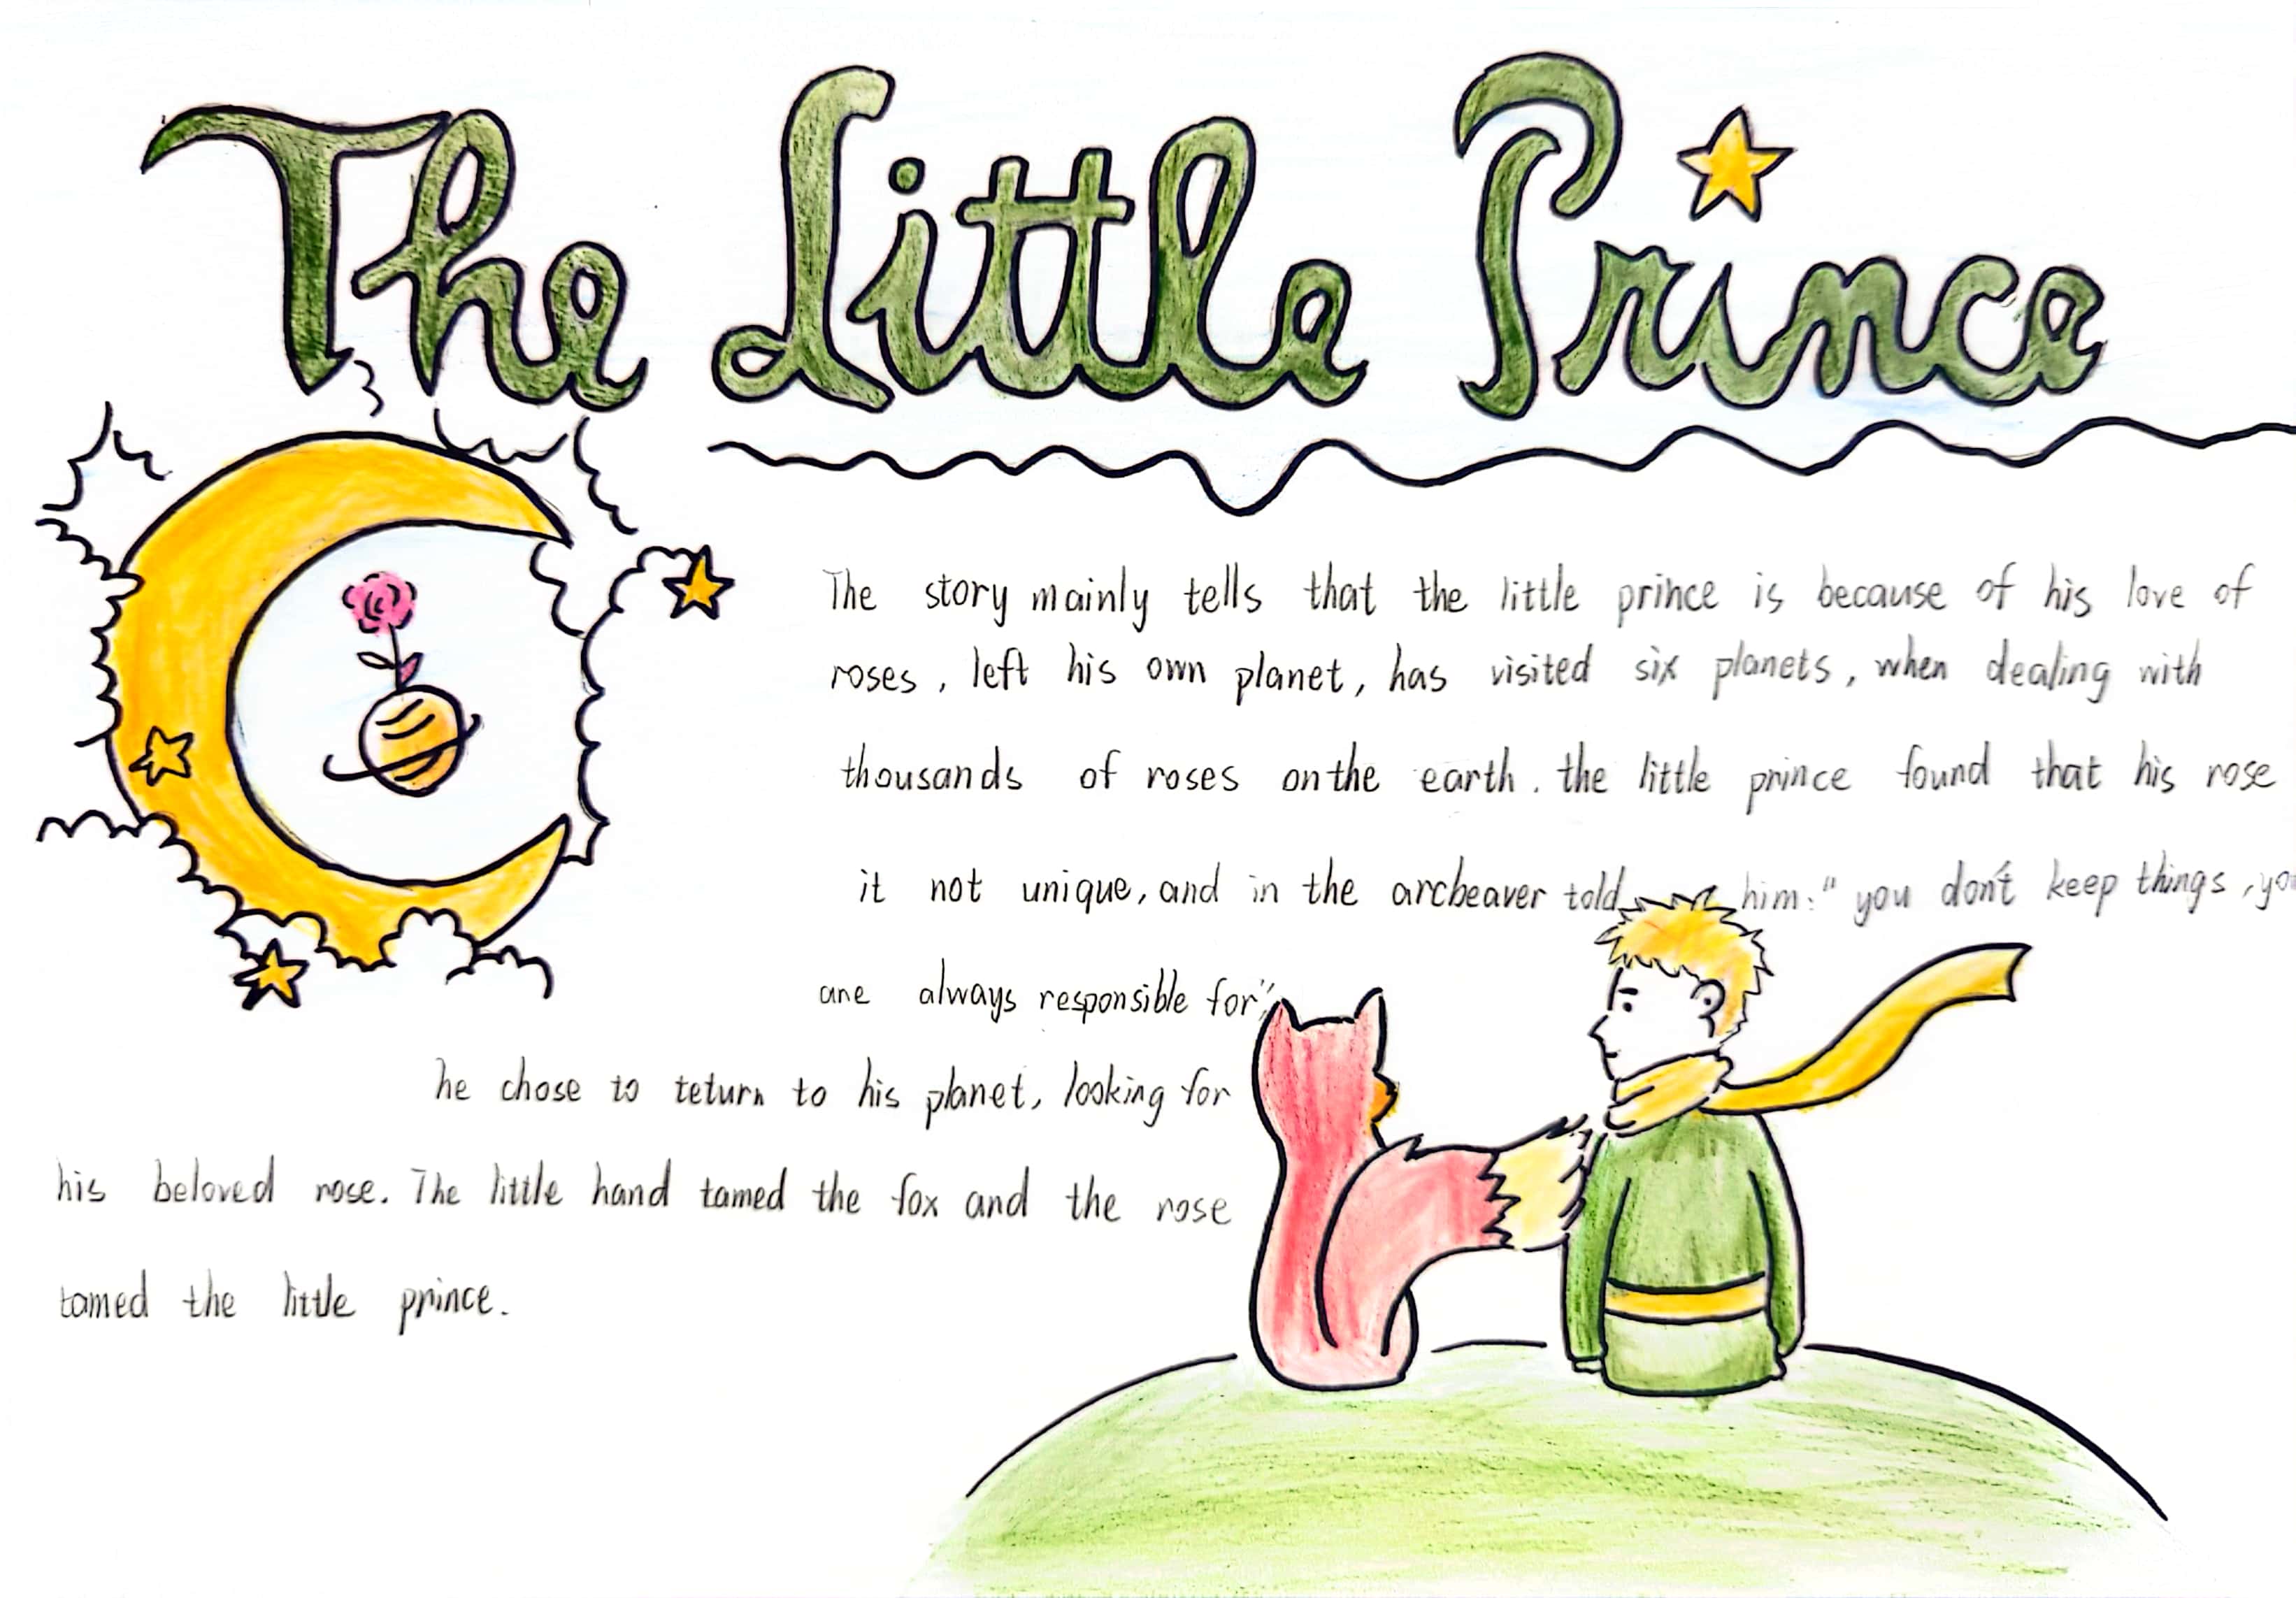 The Little Prince
The story mainly tells that the little prince is because of his love of
roses, left his own planet, has visited six planets, when dealing with
thousands of roses on the earth. the little prince found that his rose
it not unique, and in the arcbeaver told him:" you don't keep things, you
are always responsible for",
he chose to teturn to his planet, looking for
his beloved rose. The little hand tamed the fox and the rose
tamed the little prince.